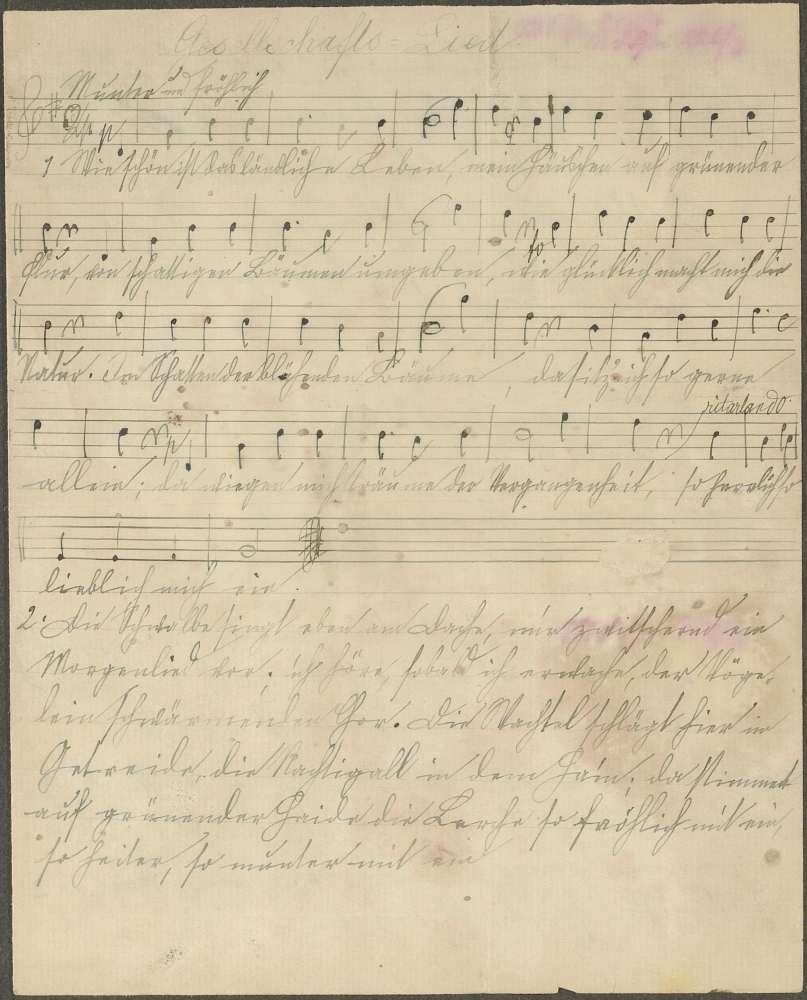 Gesellschafts=Lied.
Munter und fröhlich
1 Wie schön ist das ländliche Leben, mein Häuschen auf grünender
Flur, von schattigen Bäumen umgeben, wie glücklich macht mich die
Natur. Im Schatten der blühenden Bäume, da sitz ich so gerne
ritartando.
allein; da wiegen mich träume der Vergangenheit, so herrlich so
lieblich mich ein.
2. Die Schwalbe singt oben am Dache, mir zwitschernd ein
Morgenlied vor. ich höre, sobald ich erwache, der Vöge-
lein schwärmenden Chor. Die Wachtel schlägt hier im
Getreide, die Nachtigall in dem Hain; da stimmet
auf grünender Haide die Lerche so fröhlich mit ein,
so heiter, so munter mit ein